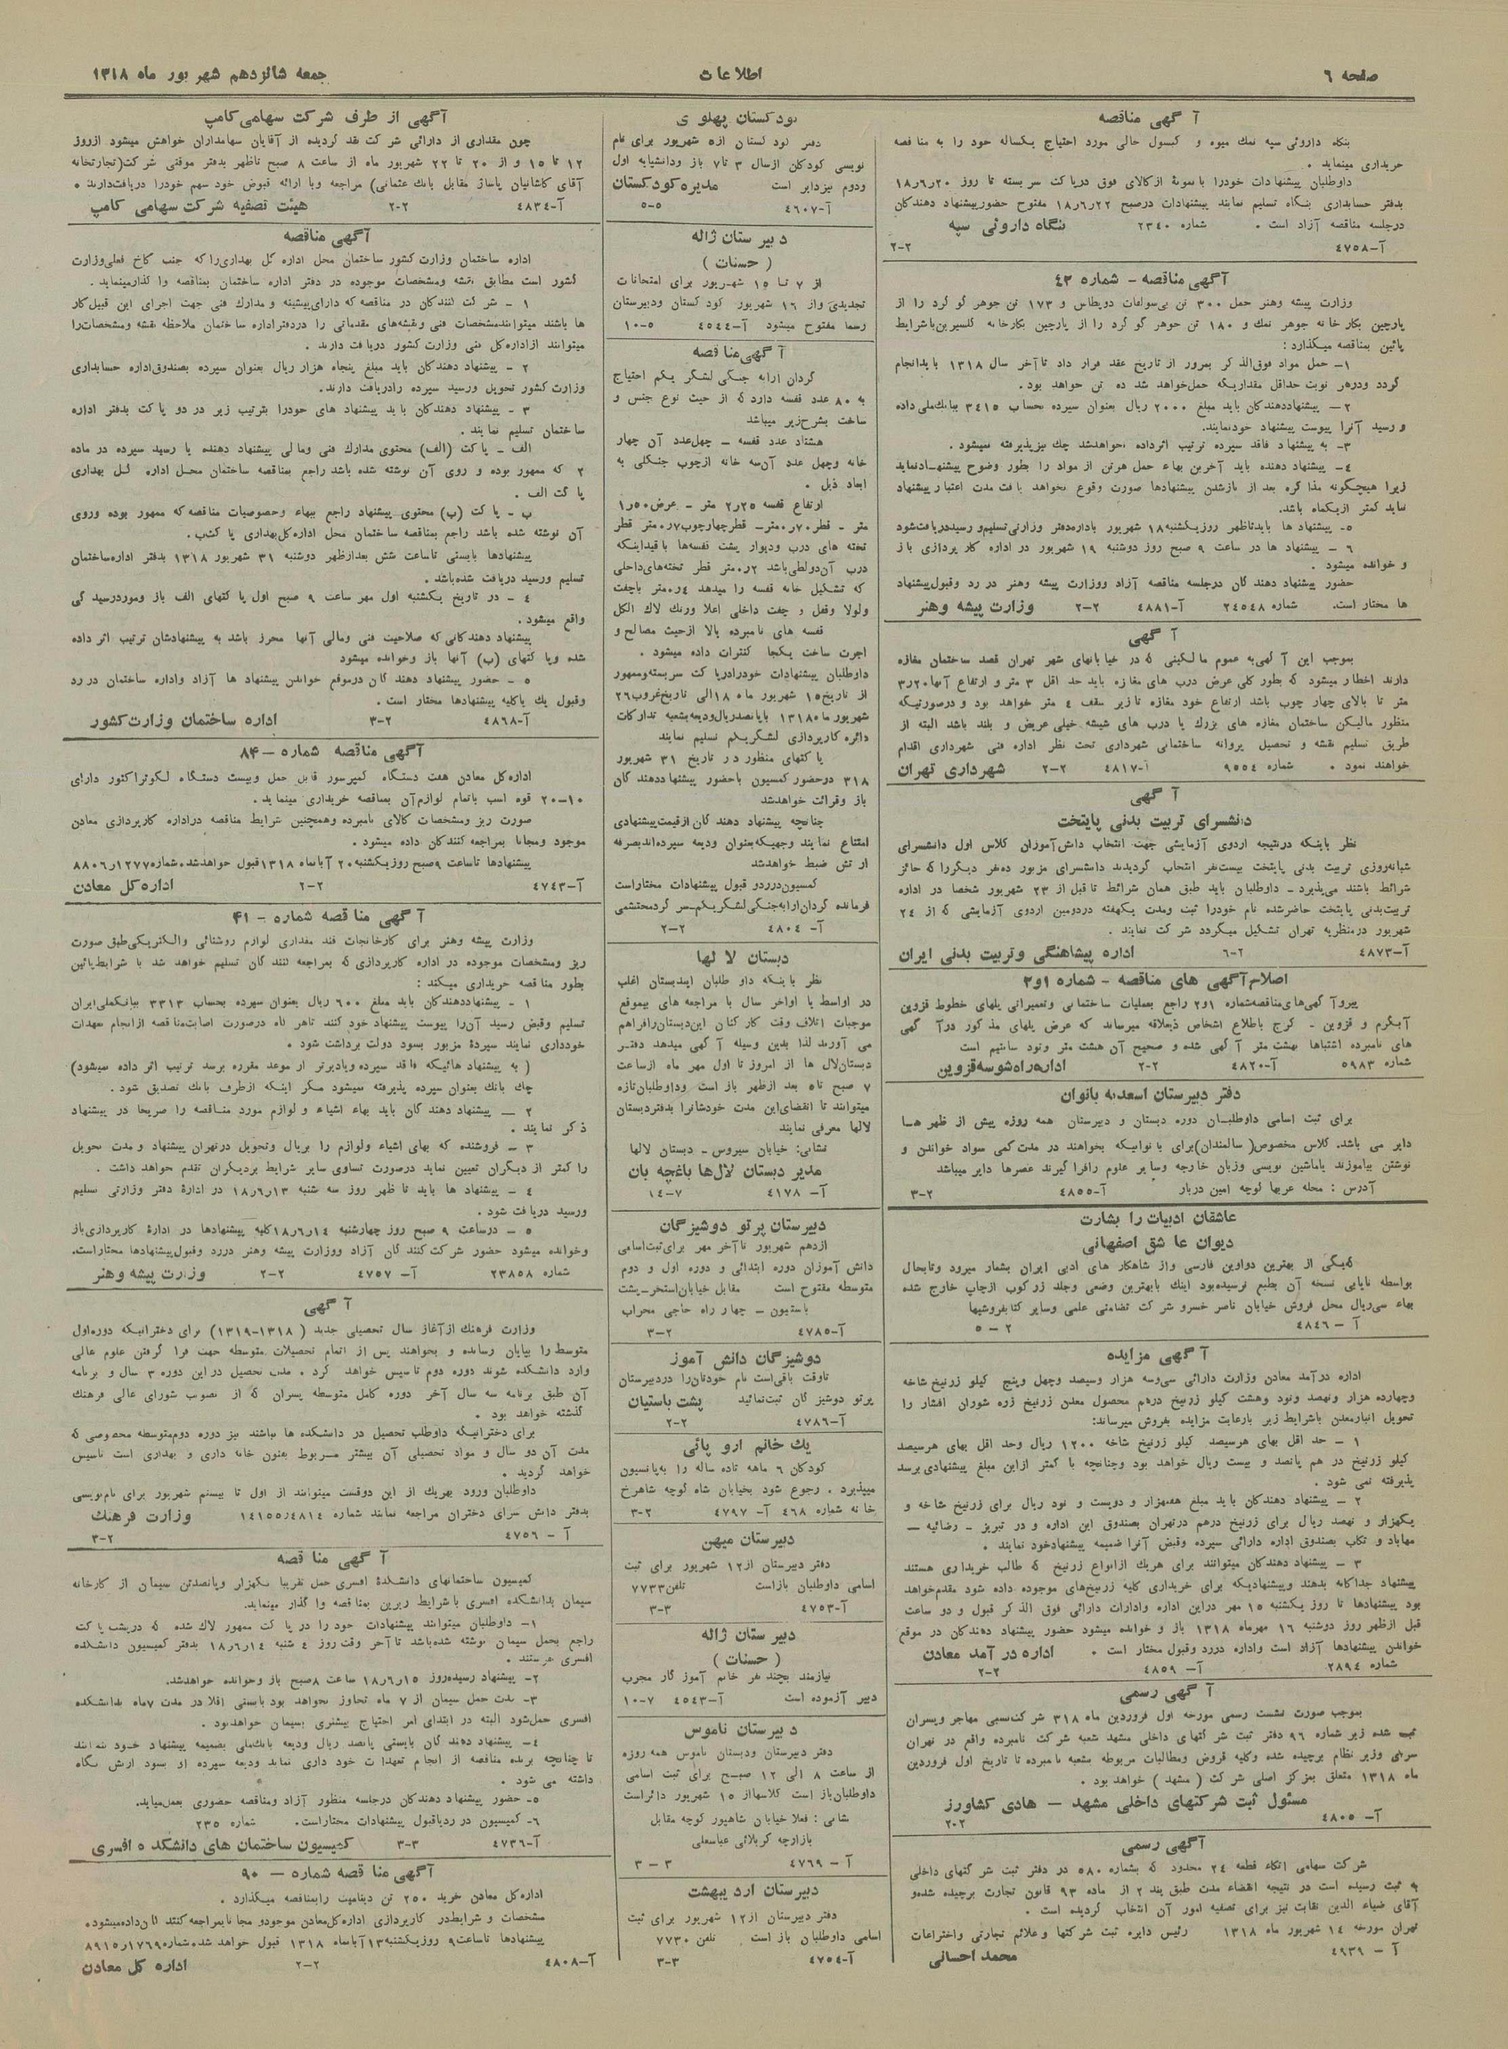 صفحه ۶
اطلاعات
جمعه شانزدهم شهریور ماه ۱۳۱۸
آگهی مناقصه
بنگاه داروئی سپه نمك میوه و کپسول خالی مورد احتیاج یکساله خود را به مناقصه
خریداری مینماید .
داوطلبان پیشنهادات خودرا با نمونهٔ از کالای فوق درپاکت سر بسته تا روز ۲۰ر۶ر۱۸
بدفتر حسابداری بنگاه تسلیم نمایند پیشنهادات درصبح ۲۲ر۶ر۱۸ مفتوح حضور پیشنهاد دهندگان
درجلسه مناقصه آزاد است . شماره ۲۳۴۰ بنگاه داروئی سپه
آ-۴۷۵۸ ۲-۲
آگهی مناقصه - شماره ۴۲
وزارت پیشه وهنر حمل ۳۰۰ تن بی‌سولفات دوپطاس و ۱۷۳ تن جوهر گوگرد را از
پارچین بکارخانه جوهر نمك و ۱۸۰ تن جوهر گوگرد را از پارچین بکارخانه گلیسرین باشرایط
پائین بمناقصه میگذارد :
۱- حمل مواد فوق‌الذکر بمرور از تاریخ عقد قرار داد تا آخر سال ۱۳۱۸ باید انجام
گردد ودرهر نوبت حداقل مقداریکه حمل‌خواهد شد ده تن خواهد بود .
۲- پیشنهاددهندگان باید مبلغ ۲۰۰۰ ریال بعنوان سپرده بحساب ۳۴۱۵ ببانك‌ملی داده
و رسید آنرا پیوست پیشنهاد خودنمایند.
۳- به پیشنهاد فاقد سپرده ترتیب اثرداده نخواهدشد چك نیز پذیرفته نمیشود .
۴- پیشنهاد دهنده باید آخرین بهاء حمل هرتن از مواد را بطور وضوح پیشنهادنماید
زیرا هیچگونه مذاکره بعد از بازشدن پیشنهادها صورت وقوع نخواهد یافت مدت اعتبار پیشنهاد
نباید کمتر از یکماه باشد.
۵- پیشنهاد ها باید تاظهر روز یکشنبه ۱۸ شهریور باداره دفتر وزارتی تسلیم و رسید دریافت شود
۶ - پیشنهاد ها در ساعت ۹ صبح روز دوشنبه ۱۹ شهریور در اداره کارپردازی باز
و خوانده میشود .
حضور پیشنهاد دهندگان درجلسه مناقصه آزاد ووزارت پیشه وهنر در رد وقبول پیشنهاد
ها مختار است. شماره ۲۴۵۴۸ آ-۴۸۸۱ ۲-۲ وزارت پیشه وهنر
آگهی
بموجب این آگهی به عموم مالکینی که در خیابانهای شهر تهران قصد ساختمان مغازه
دارند اخطار میشود که بطور کلی عرض درب های مغازه باید حد اقل ۳ متر و ارتفاع آنها ۳٫۲۰
متر تا بالای چهار چوب باشد ارتفاع خود مغازه تا زیر سقف ۴ متر خواهد بود و درصورتیکه
منظور مالکین ساختمان مغازه های بزرگ با درب های شیشه خیلی عریض و بلند باشد البته از
طریق تسلیم نقشه و تحصیل پروانه ساختمانی شهرداری تحت نظر اداره فنی شهرداری اقدام
خواهند نمود . شماره ۹۵۵۴ آ-۴۸۱۷ ۲-۲ شهرداری تهران
آگهی
دانشسرای تربیت بدنی پایتخت
نظر باینکه درنتیجه اردوی آزمایشی جهت انتخاب دانش‌آموزان کلاس اول دانشسرای
شبانه‌روزی تربیت بدنی پایتخت بیست‌نفر انتخاب گردیدند دانشسرای مزبور ده‌نفر دیگر را که حائز
شرائط باشند می‌پذیرد - داوطلبان باید طبق همان شرائط تا قبل از ۲۳ شهریور شخصا در اداره
تربیت‌بدنی پایتخت حاضرشده نام خودرا ثبت ومدت یکهفته دردومین اردوی آزمایشی که از ۲۴
شهریور درمنظریه تهران تشکیل میگردد شرکت نمایند .
آ-۴۸۷۳ ۲-۶ اداره پیشاهنگی و تربیت بدنی ایران
اصلاح آگهی های مناقصه - شماره ۱و۲
پیرو آگهی‌های مناقصه‌شماره ۱و۲ راجع بعملیات ساختمانی وتعمیراتی پلهای خطوط قزوین
آبگرم و قزوین - کرج باطلاع اشخاص ذیعلاقه میرساند که عرض پلهای مذکور در آگهی
های نامبرده اشتباها بهشت متر آگهی شده و صحیح آن هشت متر ونود سانتیم است
شماره ۵۹۸۳ آ-۴۸۲۰ ۲-۲ اداره راه‌شوسه قزوین
دفتر دبیرستان اسعدیه بانوان
برای ثبت اسامی داوطلبان دوره دبستان و دبیرستان همه روزه پیش از ظهر ها
دایر می باشد. کلاس مخصوص(سالمندان)برای بانوانیکه بخواهند در مدت‌کمی سواد خواندن و
نوشتن بیاموزند یاماشین نویسی وزبان خارجه وسایر علوم رافرا گیرند عصرها دایر میباشد
آدرس : محله عربها کوچه امین دربار آ-۴۸۵۵ ۲-۳
عاشقان ادبیات را بشارت
دیوان عاشق اصفهانی
که‌یکی از بهترین دواوین فارسی واز شاهکار های ادبی ایران بشمار میرود وتابحال
بواسطه نایابی نسخه آن بطبع نرسیده‌بود اینك بابهترین وضعی وجلد زرکوب ازچاپ خارج شده
بهاء سی‌ریال محل فروش خیابان ناصر خسرو شرکت تضامنی علمی وسایر کتابفروشیها
آ - ۴۸۴۶ ۲ - ۵
آگهی مزایده
اداره درآمد معادن وزارت دارائی سی‌وسه هزار وسیصد وچهل وپنج کیلو زرنیخ شاخه
وچهارده هزار ونهصد ونود وهشت کیلو زرنیخ درهم محصول معدن زرنیخ زره شوران افشار را
تحویل انبارمعدن باشرایط زیر بارعایت مزایده بفروش میرساند:
۱ - حد اقل بهای هرسیصد کیلو زرنیخ شاخه ۱۲۰۰ ریال وحد اقل بهای هرسیصد
کیلو زرنیخ در هم پانصد و بیست ریال خواهد بود وچنانچه با کمتر ازاین مبلغ پیشنهادی برسد
پذیرفته نمی شود .
۲ - پیشنهاد دهندگان باید مبلغ هفتهزار و دویست و نود ریال برای زرنیخ شاخه و
یکهزار و نهصد ریال برای زرنیخ درهم درتهران بصندوق این اداره و در تبریز - رضائیه -
مهاباد و تکاب بصندوق اداره دارائی سپرده وقبض آنرا ضمیمه پیشنهادخود نمایند .
۳ - پیشنهاد دهندگان میتوانند برای هریك ازانواع زرنیخ که طالب خریداری هستند
پیشنهاد جداگانه بدهند وپیشنهادیکه برای خریداری کلیه زرنیخ‌های موجوده داده شود مقدم‌خواهد
بود پیشنهادها تا روز یکشنبه ۱۵ مهر دراین اداره وادارات دارائی فوق الذکر قبول و دو ساعت
قبل ازظهر روز دوشنبه ۱۶ مهرماه ۱۳۱۸ باز و خوانده میشود حضور پیشنهاد دهندگان در موقع
خواندن پیشنهادها آزاد است واداره دررد وقبول مختار است . اداره در آمد معادن
شماره ۲۸۹۴ آ- ۴۸۵۹ ۲-۲
آگهی رسمی
بموجب صورت نشست رسمی مورخه اول فروردین ماه ۳۱۸ شرکت‌نسبی مهاجر وپسران
ثبت شده زیر شماره ۹۶ دفتر ثبت شرکتهای داخلی مشهد شعبه شرکت نامبرده واقع در تهران
سرای وزیر نظام برچیده شده وکلیه قروض ومطالبات مربوطه بشعبه نامبرده تا تاریخ اول فروردین
ماه ۱۳۱۸ متعلق بمرکز اصلی شرکت ( مشهد ) خواهد بود .
مسئول ثبت شرکتهای داخلی مشهد - هادی کشاورز
آ- ۴۸۰۵ ۲-۲
آگهی رسمی
شرکت سهامی اتکاء قطعه ۲۴ محدود که بشماره ۵۸۰ در دفتر ثبت شرکتهای داخلی
به ثبت رسیده است در نتیجه انقضاء مدت طبق بند ۲ از ماده ۹۳ قانون تجارت برچیده شده و
آقای ضیاء الدین نقابت نیز برای تصفیه امور آن انتخاب گردیده است .
تهران مورخه ۱۴ شهریور ماه ۱۳۱۸ رئیس دایره ثبت شرکتها و علائم تجارتی واختراعات
آ - ۴۹۳۹ محمد احسانی
کودکستان پهلوی
دفتر کودکستان از۵ شهریور برای نام
نویسی کودکان ازسال ۳ تا ۷ باز ودانشپایه اول
ودوم نیزدایر است مدیره کودکستان
آ-۴۶۰۷ ۵-۵
دبیرستان ژاله
( حسنات )
از ۷ تا ۱۵ شهریور برای امتحانات
تجدیدی واز ۱۶ شهریور کودکستان ودبیرستان
رسما مفتوح میشود آ-۴۵۴۴ ۵-۱۰
آگهی مناقصه
گردان ارابه جنگی لشگر یکم احتیاج
به ۸۰ عدد قفسه دارد که از حیث نوع جنس و
ساخت بشرح‌زیر میباشد
هشتاد عدد قفسه - چهل‌عدد آن چهار
خانه وچهل عدد آن‌سه خانه ازچوب جنگلی به
ابعاد ذیل .
ارتفاع قفسه ۲٫۲۵ متر - عرض ۱٫۵۰
متر - قطر ۰٫۷۰ متر- قطرچهارچوب ۰٫۰۷ متر قطر
تخته های درب ودیوار پشت قفسه‌ها باقیداینکه
درب آن‌دولطی‌باشد ۰٫۰۲متر قطر تخته‌های‌داخلی
که تشکیل خانه قفسه را میدهد ۰٫۰۴متر باچفت
ولولا وقفل و چفت داخلی اعلا ورنك لاك الکل
قفسه های نامبرده بالا ازحیث مصالح و
اجرت ساخت یکجا کنترات داده میشود .
داوطلبان پیشنهادات خودرادرپاکت سربسته‌وممهور
از تاریخ۱۵ شهریور ماه ۱۸الی تاریخ‌غروب۲۶
شهریور ماه۱۳۱۸ باپانصدریال‌ودیعه‌بشعبه تدارکات
دائره کارپردازی لشگر یکم تسلیم نمایند
پاکتهای منظور در تاریخ ۳۱ شهریور
۳۱۸ درحضور کمسیون باحضور پیشنهاددهندگان
باز وقرائت خواهدشد
چنانچه پیشنهاد دهندگان ازقیمت‌پیشنهادی
امتناع نمایند وجهیکه‌بعنوان ودیعه سپرده‌اند بصرفه
ارتش ضبط خواهدشد
کمسیون‌دررد و قبول پیشنهادات مختاراست
فرمانده گردان‌ارابه‌جنگی‌لشگریکم-سرگردمحتشمی
آ- ۴۸۰۴ ۲-۲
دبستان لالها
نظر باینکه داوطلبان اینددبستان اغلب
در اواسط یا اواخر سال با مراجعه های بیموقع
موجبات اتلاف وقت کارکنان این‌دبستان‌رافراهم
می آورند لذا بدین وسیله آگهی میدهد دفتر
دبستان‌لال ها از امروز تا اول مهر ماه ازساعت
۷ صبح تا ده بعد ازظهر باز است وداوطلبان‌تازه
میتوانند تا انقضای‌این مدت خودشانرا بدفتردبستان
لالها معرفی نمایند
نشانی: خیابان سیروس- دبستان لالها
مدیر دبستان لال‌ها باغچه بان
آ- ۴۱۷۸ ۷-۱۴
دبیرستان پرتو دوشیزگان
ازدهم شهریور تا آخر مهر برای‌ثبت‌اسامی
دانش آموزان دوره ابتدائی و دوره اول و دوم
متوسطه مفتوح است مقابل خیابان‌استخر-پشت
باستیون - چهار راه حاجی محراب
آ-۴۷۸۵ ۲-۳
دوشیزگان دانش آموز
تاوقت باقی‌است نام خودتان‌را دردبیرستان
پرتو دوشیزگان ثبت‌نمائید پشت باستیان
آ-۴۷۸۶ ۲-۲
یك خانم اروپائی
کودکان ۶ ماهه تا ده ساله را به‌پانسیون
میپذیرد . رجوع شود بخیابان شاه کوچه شاهرخ
خانه شماره ۴۶۸ آ- ۴۷۹۷ ۲-۳
دبیرستان میهن
دفتر دبیرستان از۱۲ شهریور برای ثبت
اسامی داوطلبان بازاست تلفن۷۷۳۳
آ-۴۷۵۳ ۳-۳
دبیرستان ژاله
( حسنات )
نیازمند بچند نفر خانم آموزگار مجرب
دبیر آزموده است آ-۴۵۴۳ ۷-۱۰
دبیرستان ناموس
دفتر دبیرستان ودبستان ناموس همه روزه
از ساعت ۸ الی ۱۲ صبح برای ثبت اسامی
داوطلبان‌باز است کلاسهااز ۱۵ شهریور دائراست
نشانی : فعلا خیابان شاهپور کوچه مقابل
بازارچه کربلائی عباسعلی
آ - ۴۷۶۹ ۳ - ۳
دبیرستان اردیبهشت
دفتر دبیرستان از۱۲ شهریور برای ثبت
اسامی داوطلبان باز است تلفن ۷۷۳۰
آ-۴۷۵۴ ۳-۳
آگهی از طرف شرکت سهامی کامپ
چون مقداری از دارائی شرکت نقد گردیده از آقایان سهامداران خواهش میشود ازروز
۱۲ تا ۱۵ و از ۲۰ تا ۲۲ شهریور ماه از ساعت ۸ صبح تاظهر بدفتر موقتی شرکت(تجارتخانه
آقای کاشانیان پاساژ مقابل بانك عثمانی) مراجعه وبا ارائه قبوض خود سهم خودرا دریافت‌دارند .
آ-۴۸۳۴ ۲-۲ هیئت تصفیه شرکت سهامی کامپ
آگهی مناقصه
اداره ساختمان وزارت کشور ساختمان محل اداره کل بهداری‌را که جنب کاخ فعلی‌وزارت
کشور است مطابق نقشه ومشخصات موجوده در دفتر اداره ساختمان بمناقصه واگذارمینماید .
۱ - شرکت کنندگان در مناقصه که دارای‌پیشینه و مدارك فنی جهت اجرای این قبیل‌کار
ها باشند میتوانندمشخصات فنی ونقشه‌های مقدماتی را دردفتراداره ساختمان ملاحظه نقشه ومشخصات‌را
میتوانند ازاداره‌کل فنی وزارت کشور دریافت دارند .
۲ - پیشنهاد دهندگان باید مبلغ پنجاه هزار ریال بعنوان سپرده بصندوق‌اداره حسابداری
وزارت کشور تحویل ورسید سپرده رادریافت دارند.
۳ - پیشنهاد دهندگان باید پیشنهاد های خودرا بترتیب زیر در دو پاکت بدفتر اداره
ساختمان تسلیم نمایند .
الف - پاکت (الف) محتوی مدارك فنی ومالی پیشنهاد دهنده یا رسید سپرده در ماده
۲ که ممهور بوده و روی آن نوشته شده باشد راجع بمناقصه ساختمان محل اداره کل بهداری
پاکت الف .
ب - پاکت (ب) محتوی پیشنهاد راجع ببهاء وخصوصیات مناقصه‌که ممهور بوده وروی
آن نوشته شده باشد راجع بمناقصه ساختمان محل اداره‌کل‌بهداری پاکت‌ب.
پیشنهادها بایستی تاساعت شش بعدازظهر دوشنبه ۳۱ شهریور ۱۳۱۸ بدفتر اداره‌ساختمان
تسلیم ورسید دریافت شده‌باشد .
۴ - در تاریخ یکشنبه اول مهر ساعت ۹ صبح اول پاکتهای الف باز وموردرسیدگی
واقع میشود.
پیشنهاد دهندگانی‌که صلاحیت فنی ومالی آنها محرز باشد به پیشنهادشان ترتیب اثر داده
شده وپاکتهای (ب) آنها باز وخوانده میشود
۵ - حضور پیشنهاد دهندگان درموقع خواندن پیشنهاد ها آزاد واداره ساختمان در رد
وقبول یك یاکلیه پیشنهادها مختار است.
آ-۴۸۶۸ ۲-۳ اداره ساختمان وزارت کشور
آگهی مناقصه شماره - ۸۴
اداره‌کل معادن هفت دستگاه کمپرسور قابل حمل وبیست دستگاه لکوتراکتور دارای
۱۰-۲۰ قوه اسب باتمام لوازم‌آن بمناقصه خریداری مینماید.
صورت ریز ومشخصات کالای نامبرده وهمچنین شرایط مناقصه دراداره کارپردازی معادن
موجود ومجانا بمراجعه کنندگان داده میشود.
پیشنهادها تاساعت ۹صبح روزیکشنبه ۲۰ آبانماه ۱۳۱۸قبول خواهدشد.شماره۱۲۷۷ر۸۸۰۶
آ-۴۷۴۳ ۲-۲ اداره کل معادن
آگهی مناقصه شماره - ۴۱
وزارت پیشه وهنر برای کارخانجات قند مقداری لوازم روشنائی والکتریکی‌طبق صورت
ریز ومشخصات موجوده در اداره کارپردازی که بمراجعه کنندگان تسلیم خواهد شد با شرایط‌پائین
بطور مناقصه خریداری میکند :
۱ - پیشنهاددهندگان باید مبلغ ۶۰۰ ریال بعنوان سپرده بحساب ۳۳۱۳ ببانك‌ملی‌ایران
تسلیم وقبض رسید آن‌را پیوست پیشنهاد خود کنند تاهر گاه درصورت اصابت‌مناقصه ازانجام تعهدات
خودداری نمایند سپردهٔ مزبور بسود دولت برداشت شود .
( به پیشنهاد هائیکه فاقد سپرده ویادیرتر از موعد مقرره برسد ترتیب اثر داده نمیشود)
چك بانك بعنوان سپرده پذیرفته نمیشود مگر اینکه ازطرف بانك تصدیق شود .
۲ - پیشنهاد دهندگان باید بهاء اشیاء و لوازم مورد مناقصه را صریحا در پیشنهاد
ذکر نمایند .
۳ - فروشنده که بهای اشیاء ولوازم را بریال وتحویل درتهران پیشنهاد و مدت تحویل
را کمتر از دیگران تعیین نماید درصورت تساوی سایر شرایط بردیگران تقدم خواهد داشت .
۴ - پیشنهاد ها باید تا ظهر روز سه شنبه ۱۳ر۶ر۱۸ در ادارهٔ دفتر وزارتی تسلیم
ورسید دریافت شود .
۵ - درساعت ۹ صبح روز چهارشنبه ۱۴ر۶ر۱۸کلیه پیشنهادها در ادارهٔ کارپردازی‌باز
وخوانده میشود حضور شرکت‌کنندگان آزاد ووزارت پیشه وهنر دررد وقبول‌پیشنهادها مختاراست.
شماره ۲۳۸۵۸ آ- ۴۷۵۷ ۲-۲ وزارت پیشه وهنر
آگهی
وزارت فرهنك ازآغاز سال تحصیلی جدید ( ۱۳۱۸-۱۳۱۹) برای دخترانیکه دوره‌اول
متوسط را بپایان رسانده و بخواهند پس از اتمام تحصیلات متوسطه جهت فرا گرفتن علوم عالی
وارد دانشکده شوند دوره دوم تاسیس خواهد کرد . مدت تحصیل در این دوره ۳ سال و برنامه
آن طبق برنامه سه سال آخر دوره کامل متوسطه پسران که از تصویب شورای عالی فرهنك
گذشته خواهد بود .
برای دخترانیکه داوطلب تحصیل در دانشکده ها نباشند نیز دوره دوم‌متوسطه مخصوصی که
مدت آن دو سال و مواد تحصیلی آن بیشتر مربوط بفنون خانه داری و بهداری است تاسیس
خواهد گردید .
داوطلبان ورود بهریك از این دوقسمت میتوانند از اول تا بیستم شهریور برای نام‌نویسی
بدفتر دانش سرای دختران مراجعه نمایند شماره ۴۸۱۴ر۱۴۱۵۵ وزارت فرهنك
آ - ۴۷۵۶ ۲-۳
آگهی مناقصه
کمیسیون ساختمانهای دانشکدهٔ افسری حمل تقریبا یکهزار وپانصدتن سیمان از کارخانه
سیمان بدانشکده افسری باشرایط زیرین بمناقصه واگذار مینماید.
۱- داوطلبان میتوانند پیشنهادات خود را در پاکت ممهور لاك شده که درپشت پاکت
راجع بحمل سیمان نوشته شده‌باشد تاآخر وقت روز ۴ شنبه ۱۴ر۶ر۱۸ بدفتر کمیسیون دانشکده
افسری بفرستند .
۲- پیشنهاد رسیده‌روز ۱۵ر۶ر۱۸ ساعت ۸صبح باز وخوانده خواهدشد.
۳- مدت حمل سیمان از ۷ ماه تجاوز نخواهد بود بایستی اقلا در مدت ۷ماه بدانشکده
افسری حمل‌شود البته در ابتدای امر احتیاج بیشتری بسیمان خواهدبود .
۴- پیشنهاد دهندگان بایستی پانصد ریال ودیعه بانك‌ملی بضمیمه پیشنهاد خود بنمایند
تا چنانچه برنده مناقصه از انجام تعهدات خود داری نماید ودیعه سپرده از سود ارتش نگاه
داشته می شود .
۵- حضور پیشنهاد دهندگان درجلسه منظور آزاد ومناقصه حضوری بعمل‌میاید.
۶- کمیسیون در ردیاقبول پیشنهادات مختاراست. شماره ۲۳۵
آ-۴۷۳۶ ۳-۳ کمیسیون ساختمان های دانشکده افسری
آگهی مناقصه شماره - ۹۰
اداره‌کل معادن خرید ۲۵۰ تن دینامیت رابمناقصه میگذارد .
مشخصات و شرایط‌در کارپردازی اداره‌کل‌معادن موجودو مجانا بمراجعه‌کنندگان‌داده‌میشود .
پیشنهادها تاساعت۹ روزیکشنبه۱۳آبانماه ۱۳۱۸ قبول خواهد شده.شماره۱۷۶۹ر۸۹۱۵
آ-۴۸۰۸ ۲-۲ اداره کل معادن